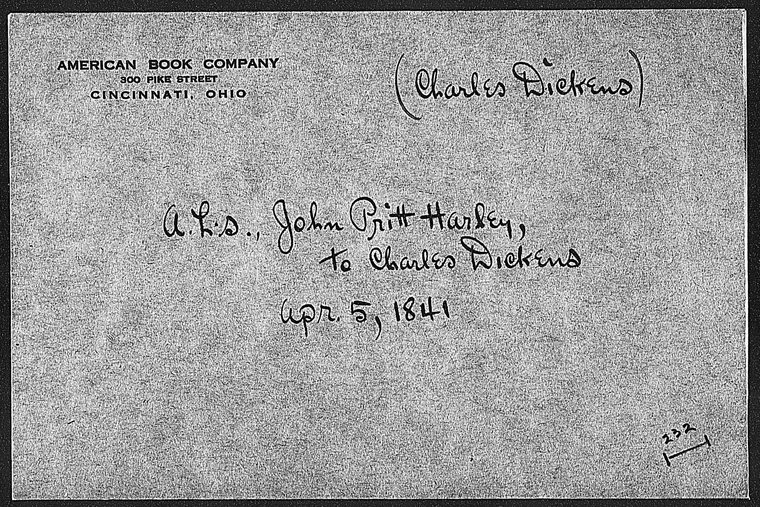 AMERICAN BOOK COMPANY
300 PIKE STREET
CINCINNATI, OHIO
(Charles Dickens)
A.L.s., John Pritt Harley,
to Charles Dickens
Apr. 5, 1841
232